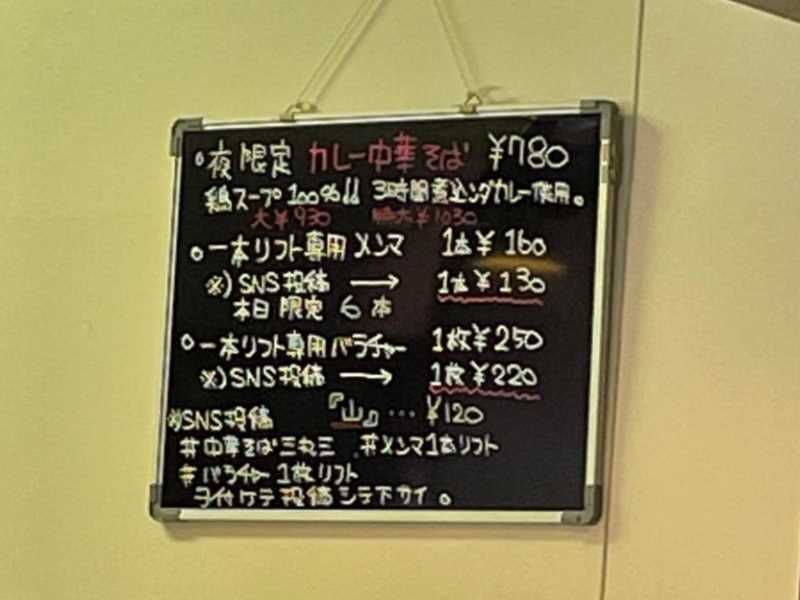 ○夜限定 カレー中華そば ¥780
鶏スープ100%!! 3時間煮込ンダカレー使用。
大¥930 特大¥1030
○一本リフト専用メンマ 1本¥160
※)SNS投稿 → 1本¥130
本日限定6本
○一本リフト専用バラチャー 1枚¥250
※)SNS投稿 → 1枚¥220
※)SNS投稿 『山』…¥120
#中華そば三丸三 #メンマ1本リフト
#バラチャー1枚リフト
ヲ付ケテ投稿シテ下サイ。